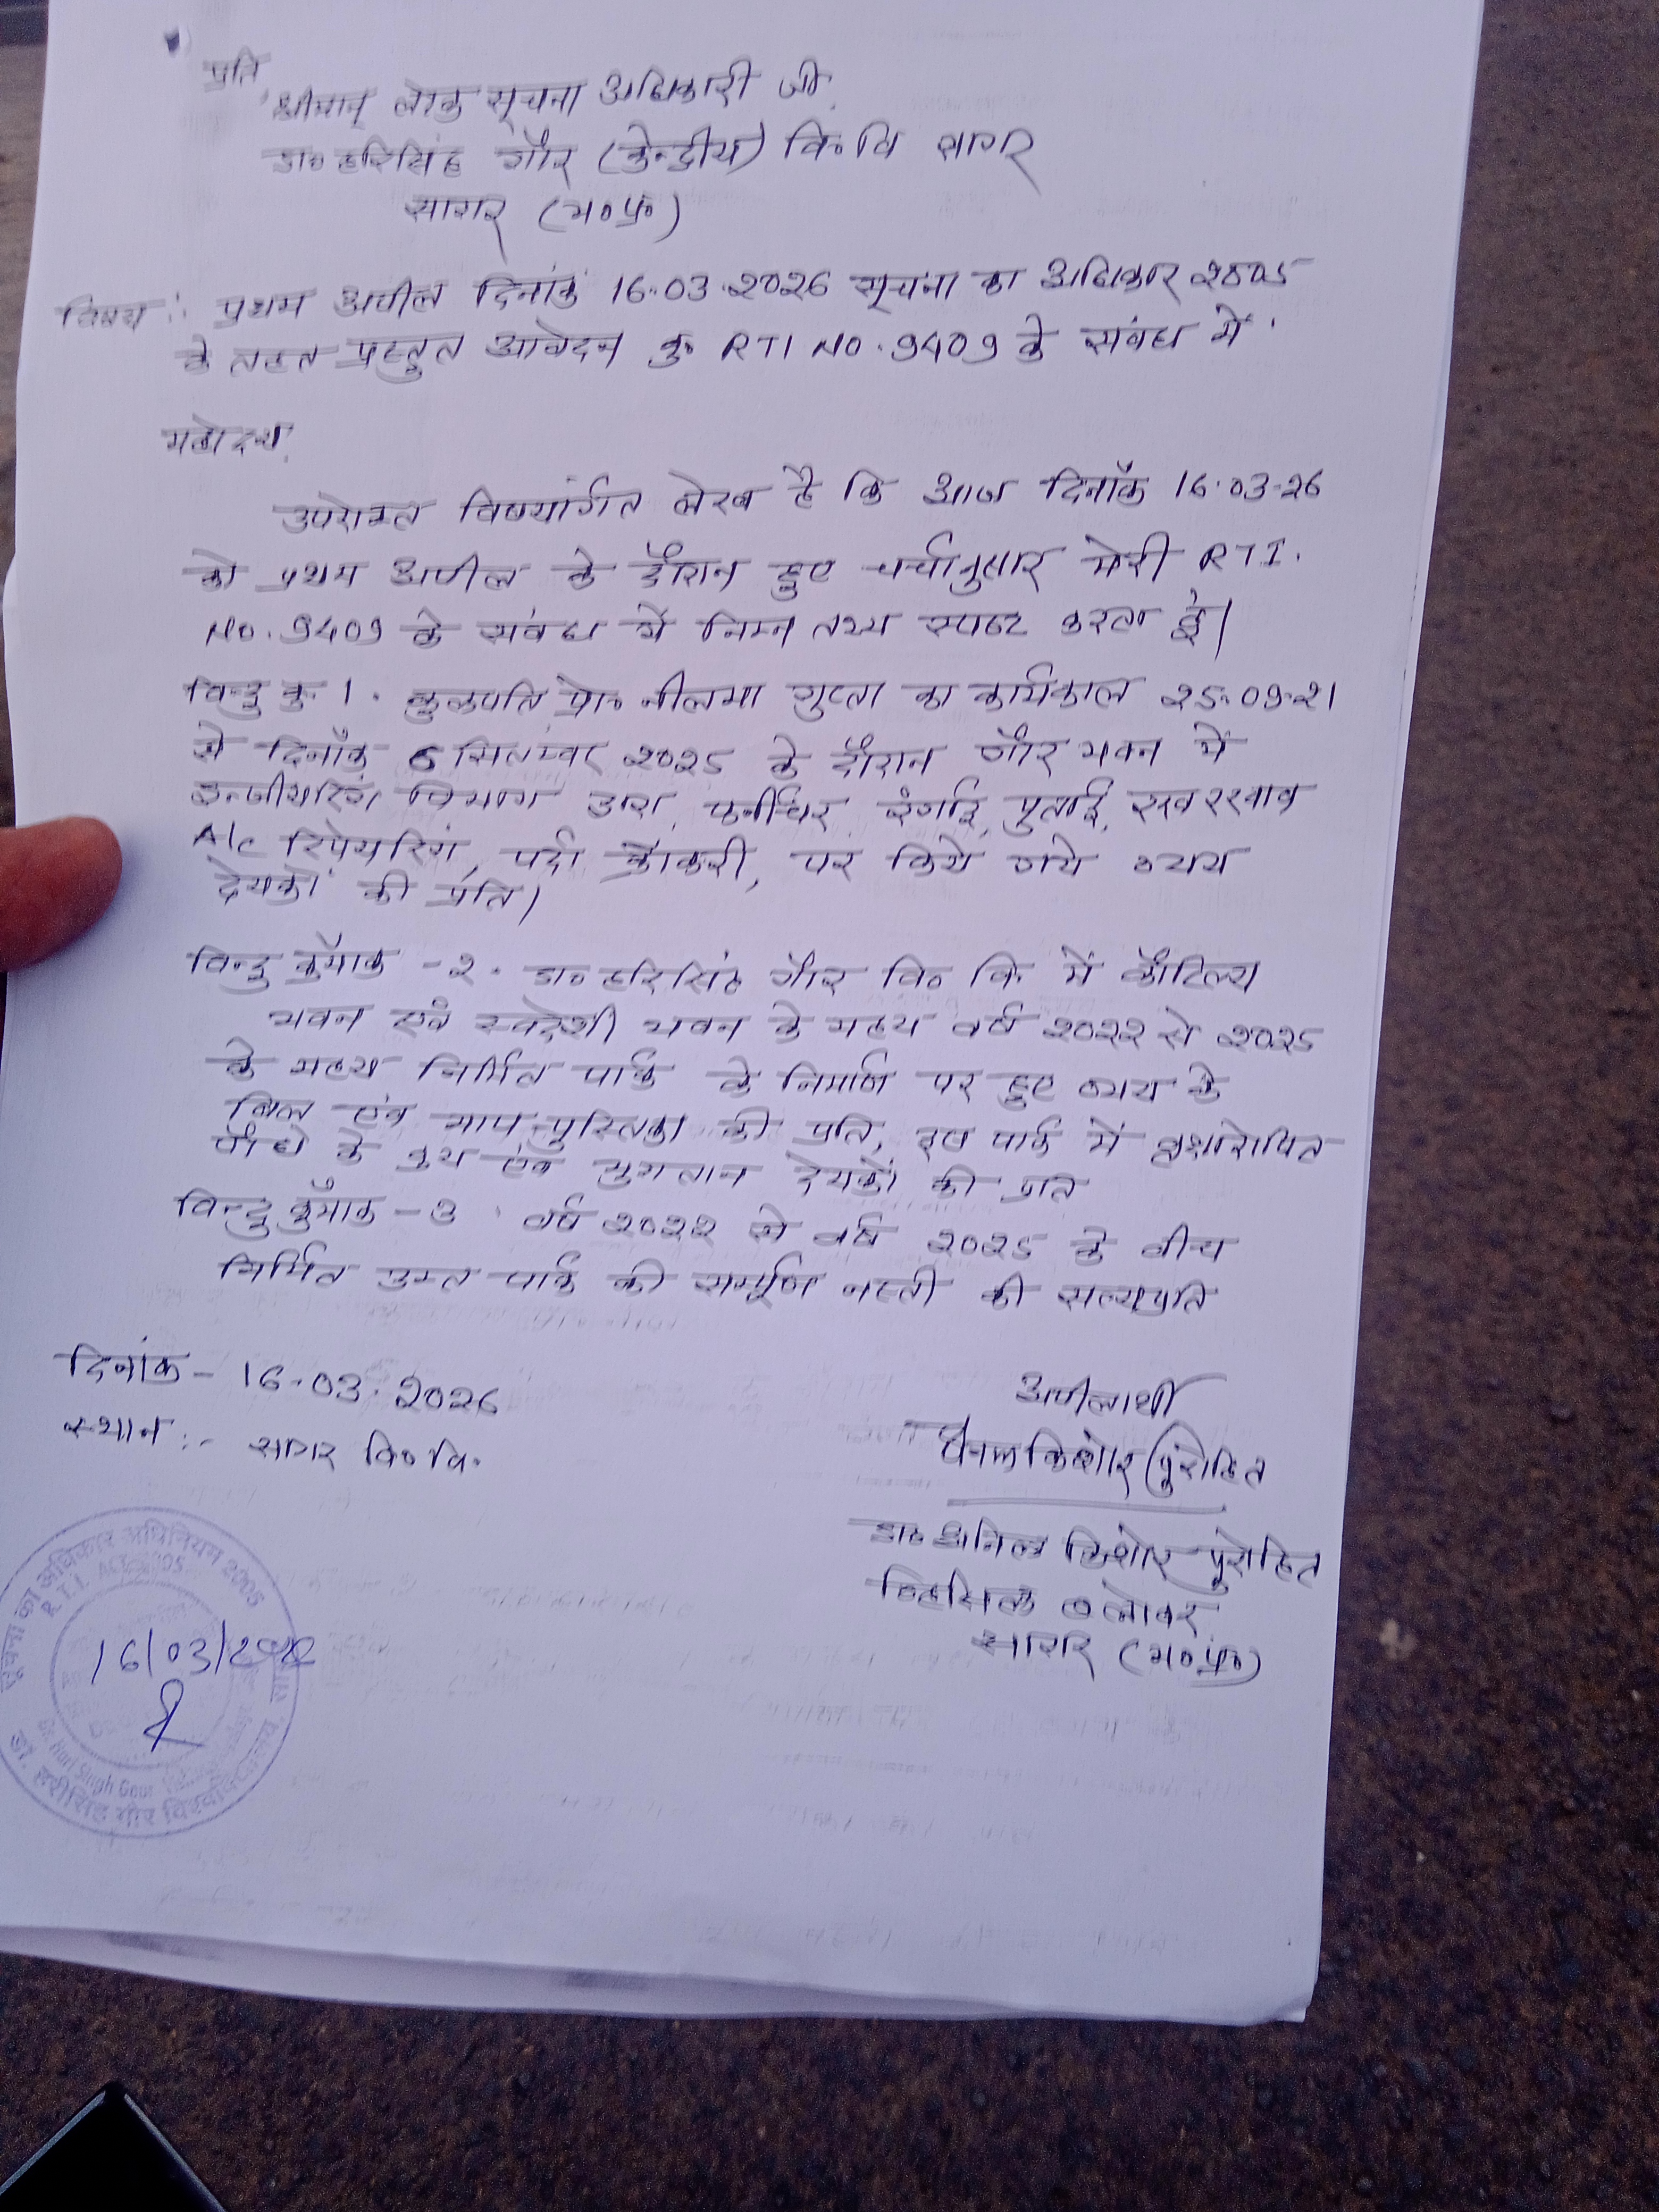 प्रति
श्रीमान् लोक सूचना अधिकारी जी
डा० हरिसिंह गौर (केन्द्रीय) वि०वि सागर
सागर (म०प्र०)
विषय :- प्रथम अपील दिनांक 16.03.2026 सूचना का अधिकार 2005
के तहत प्रस्तुत आवेदन क्र. RTI NO. 9409 के संबंध में
महोदय,
उपरोक्त विषयांर्गत लेख है कि आज दिनाँक 16.03-26
को प्रथम अपील के दौरान हुए चर्चानुसार मेरी RTI.
NO. 9409 के संबंध में निम्न तथ्य स्पष्ट करता हूं।
विन्दु क्र. 1. कुलपति प्रो० नीलिमा गुप्ता का कार्यकाल 25.09.21
से दिनाँक 6 सितम्वर 2025 के दौरान गौर भवन में
इन्जीयरिंग विभाग द्वारा, फर्नीचर रंगाई, पुताई, रखरखाव
A/c रिपेयरिंग, पर्दा क्रॉकरी, पर किये गये व्यय
देयकों की प्रति।
विन्दु क्रमाँक -2. डा० हरिसिंह गौर वि० वि. में कौटिल्य
भवन एवं स्वदेशी भवन के मध्य वर्ष 2022 से 2025
के मध्य निर्मित पार्क के निर्माण पर हुए व्यय के
बिल एवं माप पुस्तिका की प्रति, इस पार्क में वृक्षारोपित
पौधे के क्रय एवं भुगतान देयकों की प्रति
विन्दु क्रमाँक -3. वर्ष 2022 से वर्ष 2025 के वीच
निर्मित उक्त पार्क की सम्पूर्ण नस्ती की सत्यप्रति
दिनांक - 16.03.2026
स्थान :- सागर वि० वि.
अपीलार्थी
अनिल किशोर पुरोहित
डा० अनिल किशोर पुरोहित
व्हिसिल ब्लोवर
सागर (म०प्र०)
सूचना का अधिकार अधिनियम 2005
R.T.I. ACT 2005
16/03/202
Dr. Hari Singh Gour
डॉ. हरीसिंह गौर विश्वविद्यालय